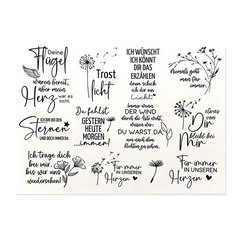 Deine
Flügel
waren bereit,
aber mein
Herz war
es nicht.
Trost
licht
ICH WÜNSCHT
ICH KÖNNT
DIR DAS
ERZÄHLEN
denn schick
ich dir ein
Licht
Niemals geht
man für
immer.
ICH BIN BEI DEN
Sternen
UND DOCH IMMER DA
Du fehlst
GESTERN
HEUTE
MORGEN
...immer!
Immer wenn
DER WIND
durch die Äste weht,
wissen wir:
DU WARST DA
etwas
von Dir
bleibt bei
Mir
Ich trage dich
bei mir,
bis wir uns
wiedersehen!
Für immer
IN UNSEREN
Herzen
Für immer
IN UNSEREN
Herzen